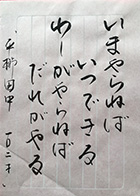 いまやらねば
いつできる
わしがやらねば
だれがやる
平櫛田中